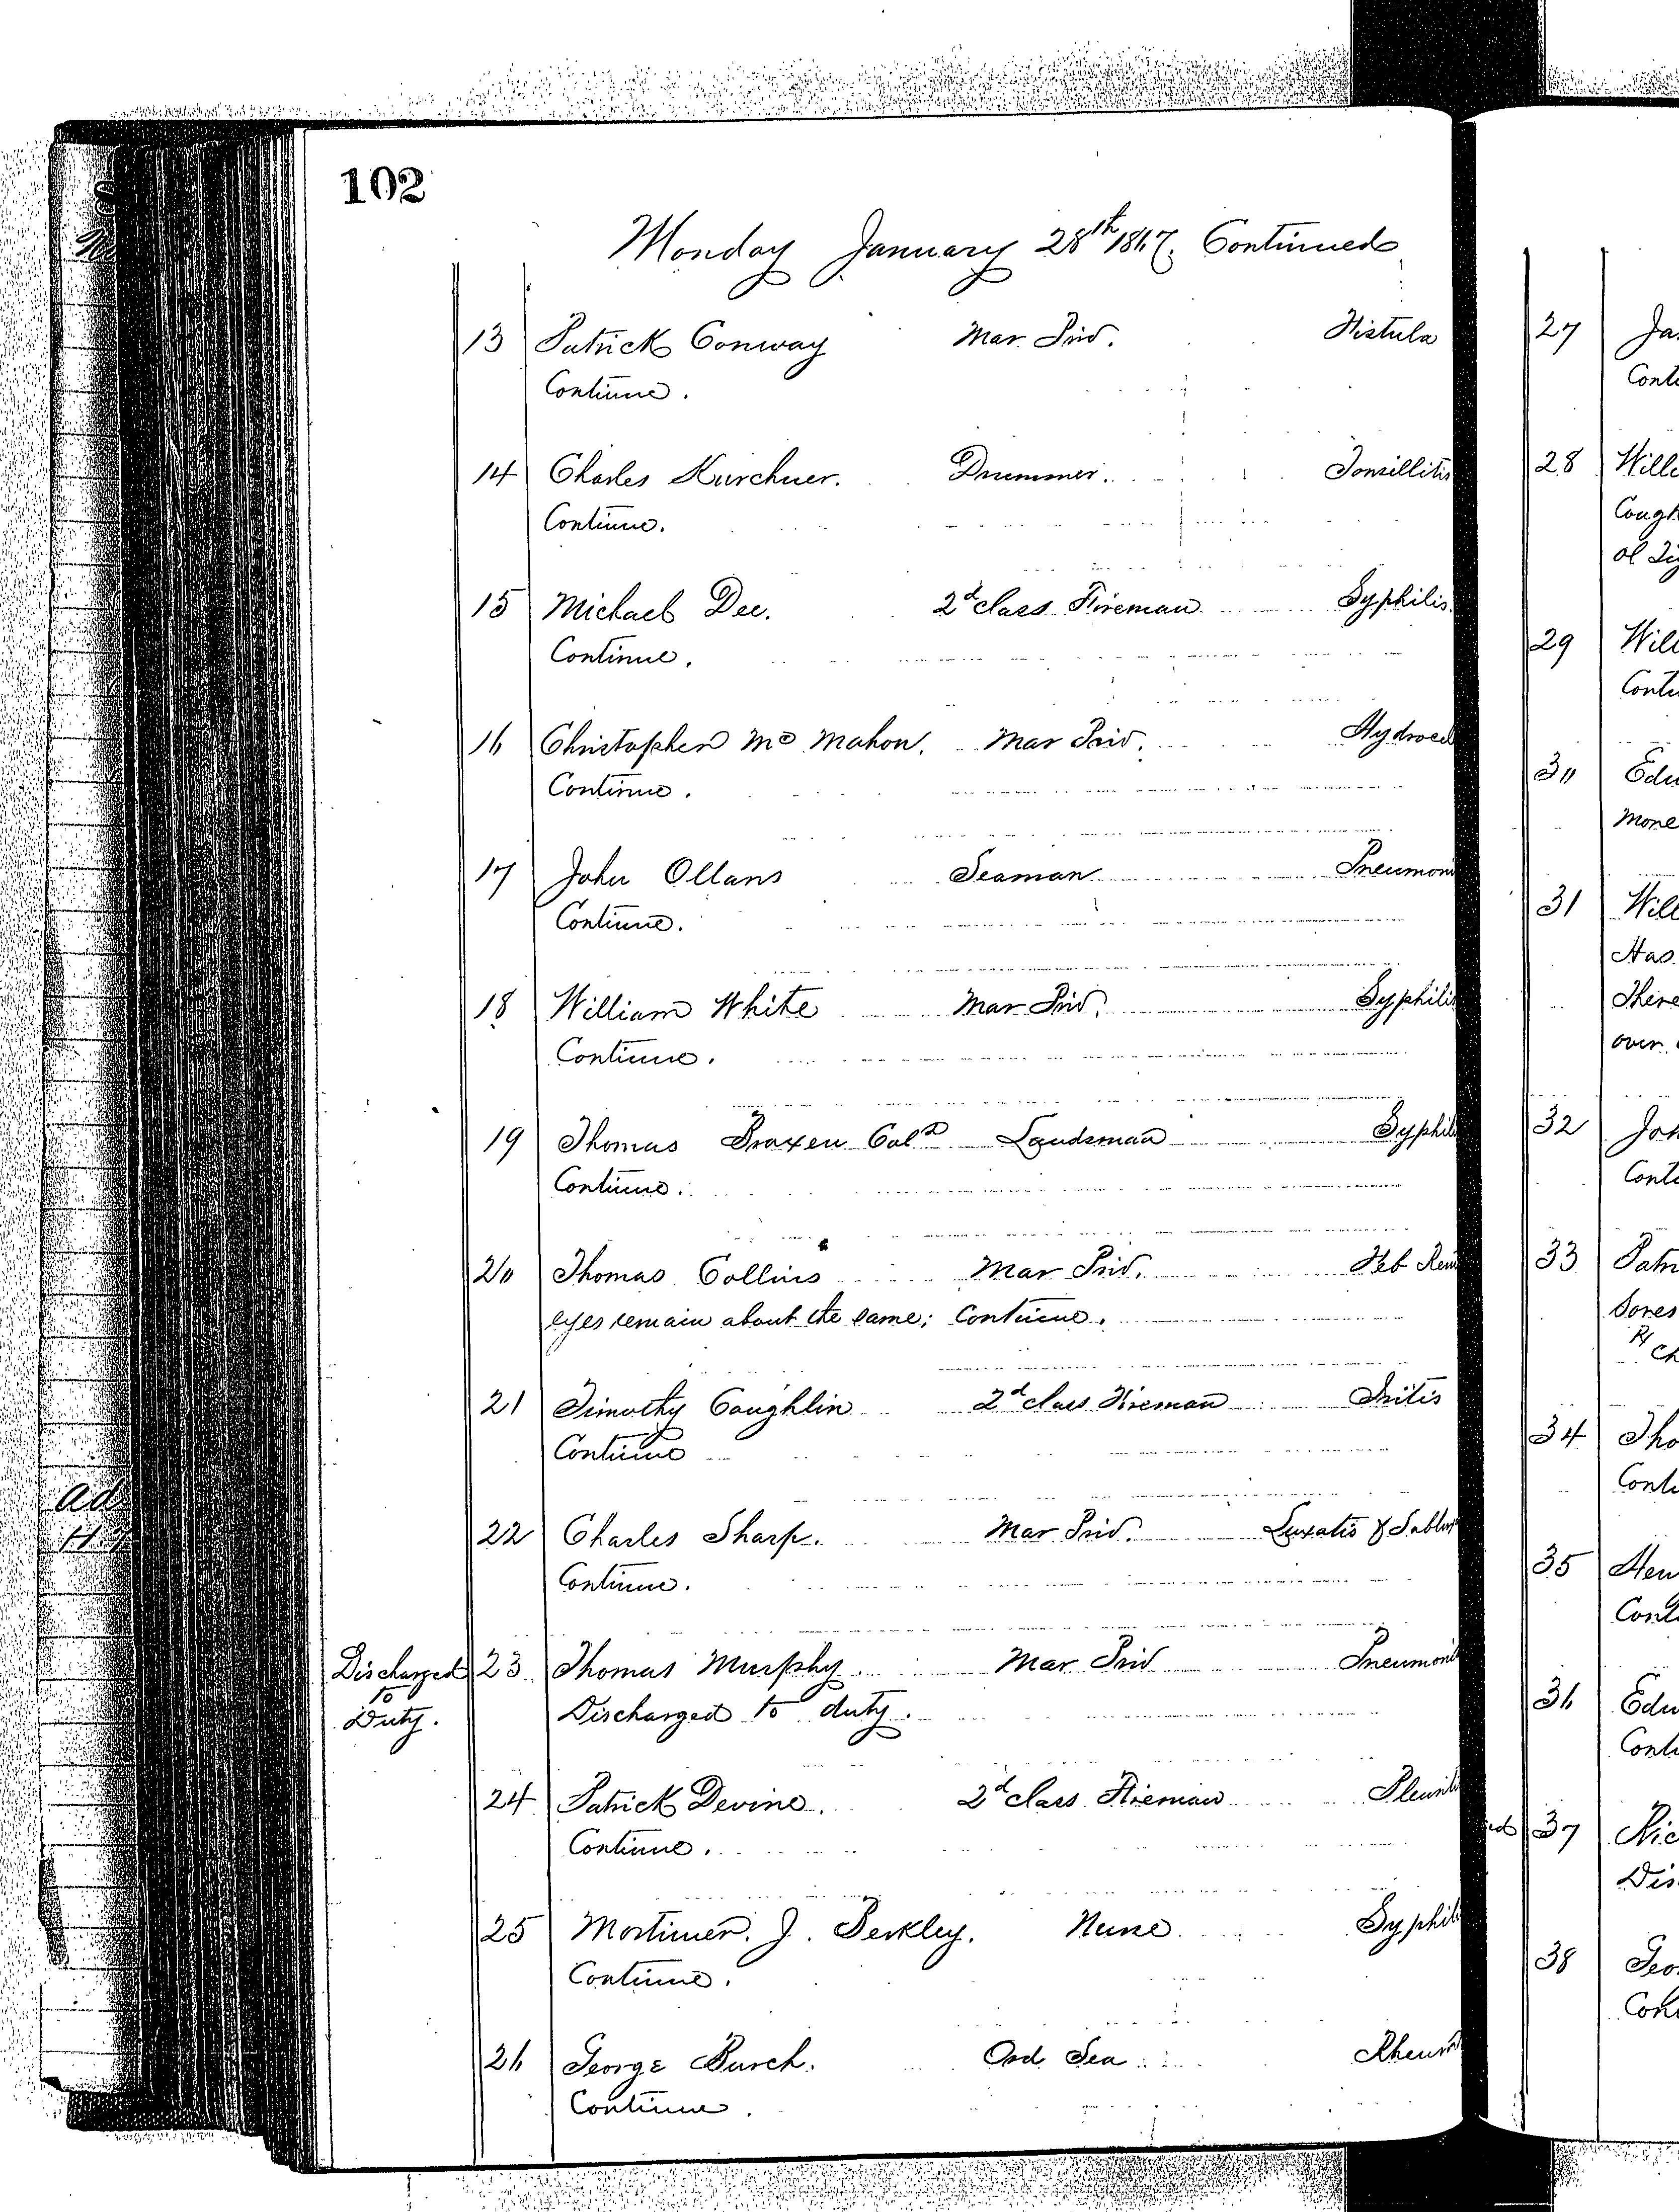 102
Monday January 28th 1867. Continued
13 Patrick Conway Mar Priv. Fistula
Continue.
14 Charles Kurchner. Drummer. Tonsillitis
Continue.
15 Michael Dee. 2d class Fireman Syphilis
Continue.
16 Christopher Mc Mahon. Mar Priv. Hydrocel
Continue.
17 John Ollans Seaman Pneumoni
Continue.
18 William White Mar Priv. Syphilis
Continue.
19 Thomas Braxen Cold Landsman Syphil
Continue.
20 Thomas Collins Mar Priv. Feb Rem
eyes remain about the same; Continue.
21 Timothy Coughlin 2d class Fireman Iritis
Continue
22 Charles Sharp. Mar Priv. Luxatio & Sublux
Continue.
Discharged to Duty. 23 Thomas Murphy. Mar Priv Pneumoni
Discharged to duty.
24 Patrick Devine. 2d class Fireman Pleurit
Continue.
25 Mortimer. J. Berkley. Nurse Syphil
Continue.
26 George Burch. Ord Sea Rheum
Continue.
27 Ja
Cont
28 Will
Cough
ol
29 Will
Cont
30 Edw
More
31 Will
Has
There
over
32 Joh
Cont
33 Patr
Sores
34 Tho
Conti
35 Hen
Cont
36 Edw
Cont
37 Ric
Dis
38 Geo
Con